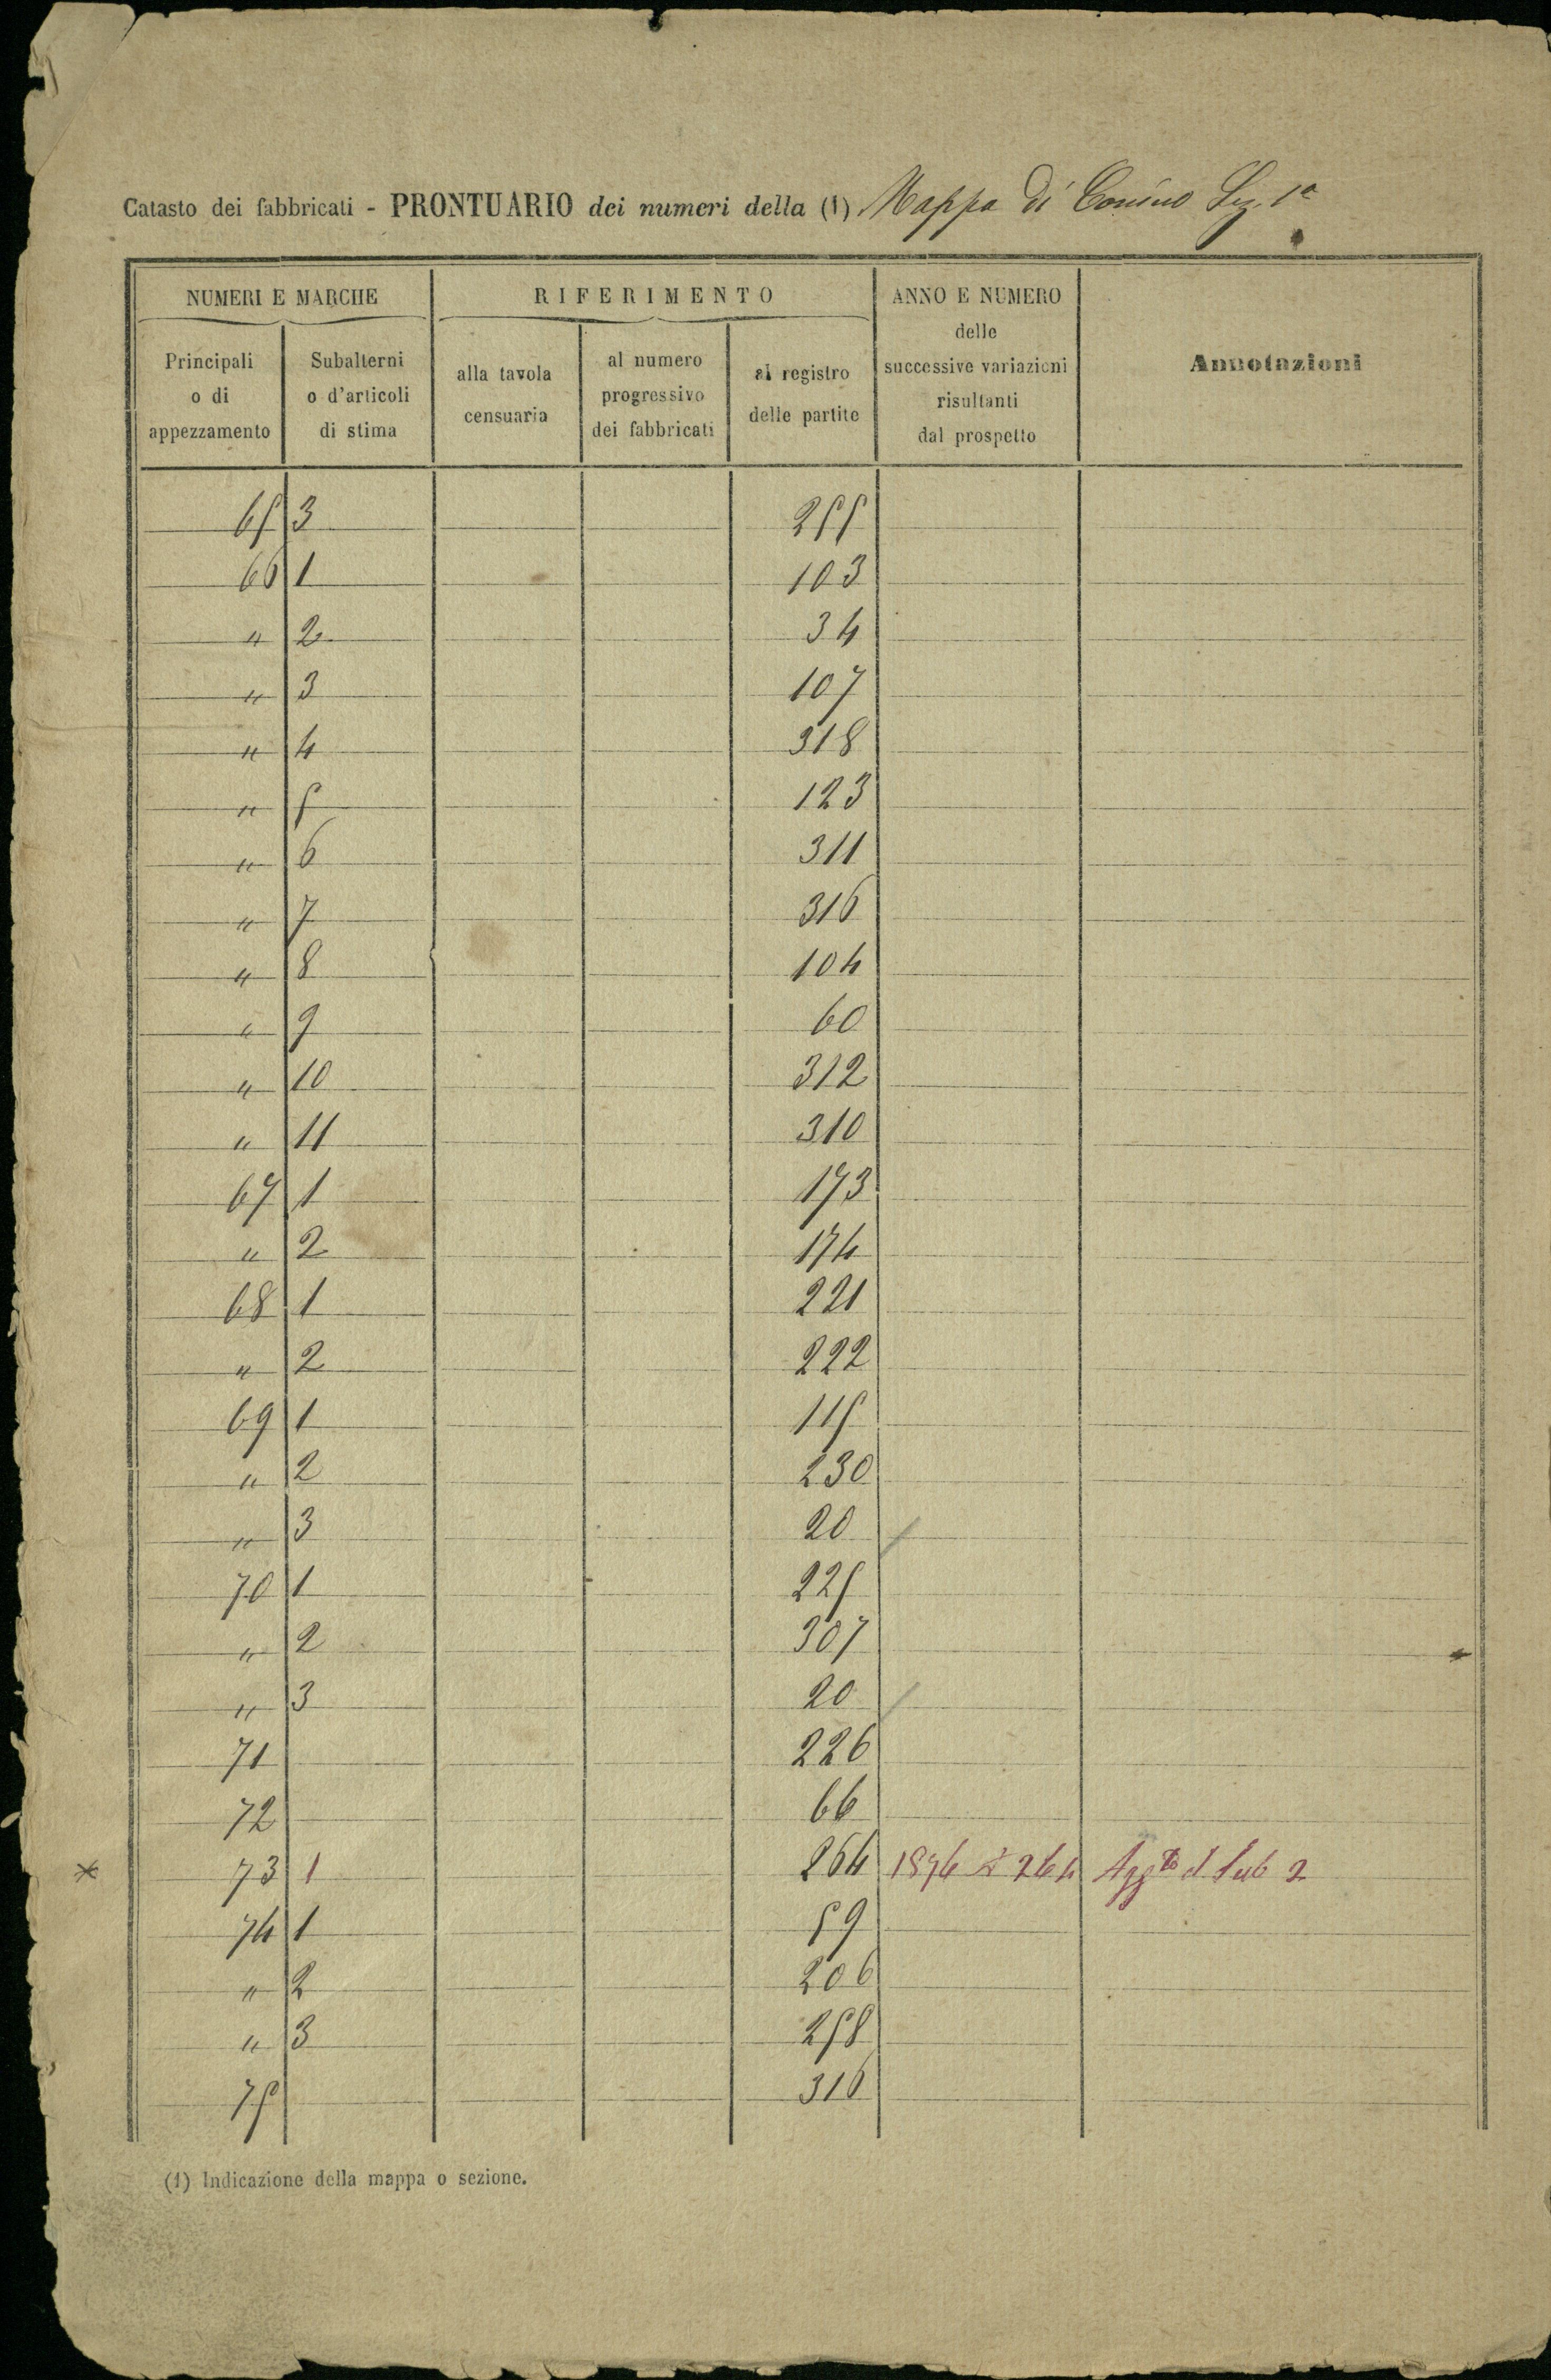 Catasto dei fabbricati - PRONTUARIO dei numeri della (1) Mappa di Conino Sez. 1ª
NUMERI E MARCHE
RIFERIMENTO
ANNO E NUMERO
delle
successive variazioni
risultanti
dal prospetto
Annotazioni
Principali
o di
appezzamento
Subalterni
o d'articoli
di stima
alla tavola
censuaria
al numero
progressivo
dei fabbricati
al registro
delle partite
65 3 255
66 1 103
" 2 34
" 3 107
" 4 318
" 5 123
" 6 311
" 7 316
" 8 104
" 9 60
" 10 312
" 11 310
67 1 173
" 2 174
68 1 221
" 2 222
69 1 115
" 2 230
" 3 20
70 1 225
" 2 307
" 3 20
71 226
72 66
* 73 1 264 1896 264 Aggto il Sub 2
74 1 59
" 2 206
" 3 258
75 316
(1) Indicazione della mappa o sezione.